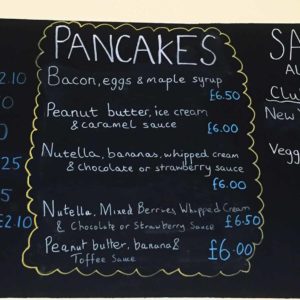 PANCAKES
Bacon, eggs & maple syrup
£6.50
Peanut butter, ice cream
& caramel sauce
£6.00
Nutella, bananas, whipped cream
& chocolate or strawberry sauce
£6.00
Nutella, Mixed Berries Whipped Cream
& Chocolate or Strawberry Sauce £6.50
Peanut butter, banana &
Toffee Sauce £6.00
2.10
0
25
5
£2.10
SA
Al
Clu
New
Vegg